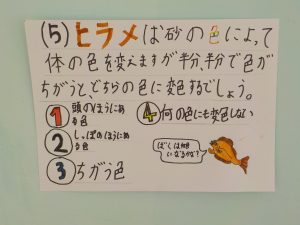 (5)ヒラメは砂の色によって
体の色を変えますが半分、半分で色が
ちがうと、どちらの色に変色するでしょう。
1 頭のほうにある色
2 しっぽのほうにある色
3 ちがう色
4 何の色にも変色しない
ぼくは何色
になるかな?